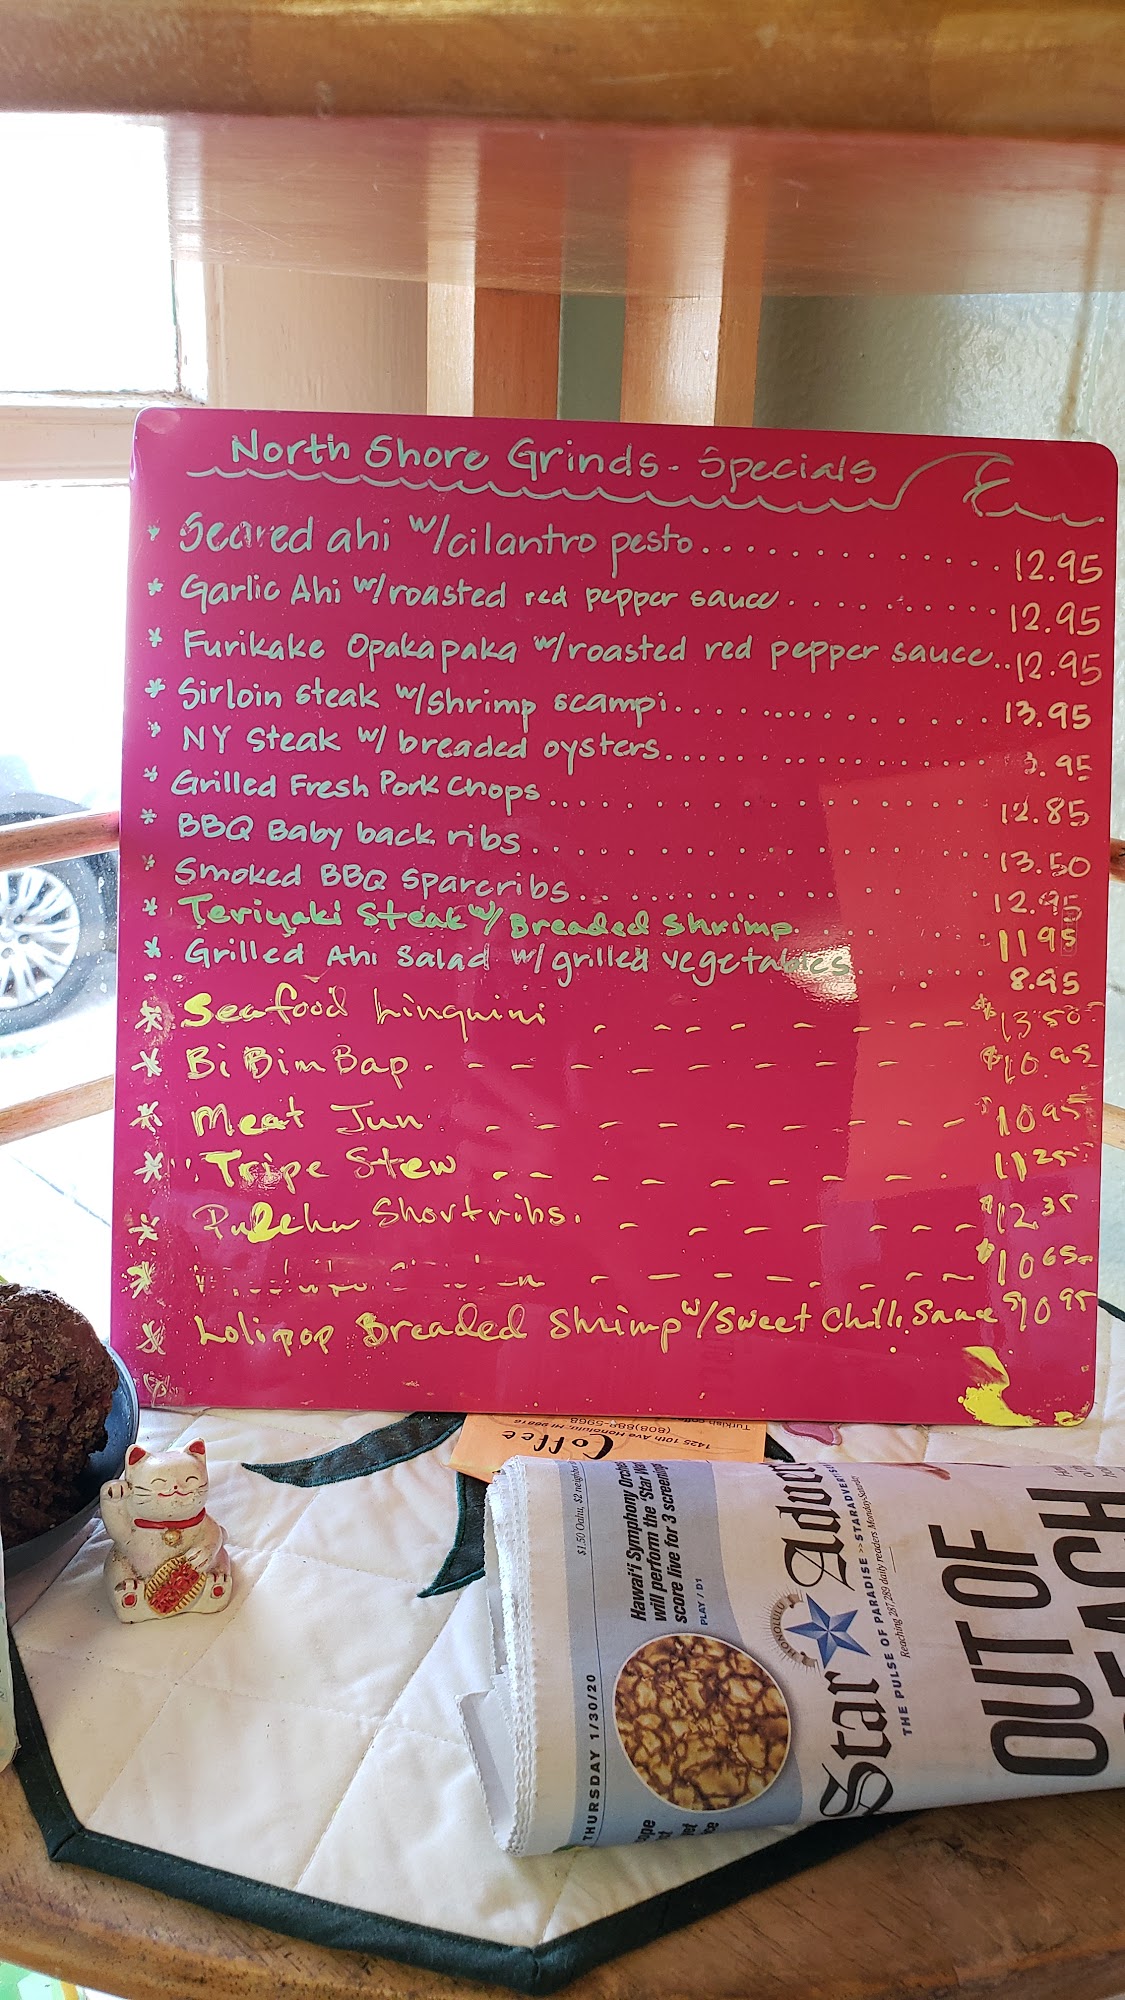 North Shore Grinds - Specials
* Seared ahi w/cilantro pesto............. 12.95
* Garlic Ahi w/roasted red pepper sauce.......... 12.95
* Furikake Opakapaka w/roasted red pepper sauce.. 12.95
* Sirloin steak w/shrimp scampi................. 13.95
* NY Steak w/ breaded oysters................ .95
* Grilled Fresh Pork Chops.................. 12.85
* BBQ Baby back ribs................. 13.50
* Smoked BBQ Spareribs........... 12.95
* Teriyaki Steak w/ Breaded Shrimp..... 11 95
* Grilled Ahi Salad w/ grilled vegetables .... 8.95
* Seafood Linquini - - - - - - - - $13 50
* Bi Bim Bap. - - - - - - - - - $10.95
* Meat Jun - - - - - - - - - $10 95
* Tripe Stew - - - - - - - - 11 25
* Shortribs. - - - - - - - $12 35
* - - - - - - - - $10 65
* Lolipop Breaded Shrimp w/Sweet Chili Sauce $10 95
Coffee
1425 10th Ave Honolulu, HI 96816
(808)888-5968
Turkish
THURSDAY 1/30/20
$1.50 Oahu, $2 neighbor
Hawai‘i Symphony
will perform the ‘Star
score live for 3 screenings
PLAY / D1
HONOLULU
Star Adver
THE PULSE OF PARADISE >> STARADVERTISER
Reaching 287,289 daily readers
OUT OF